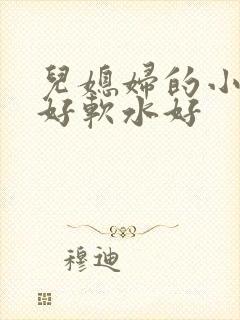 兒媳婦的小
好軟水好
穆迪